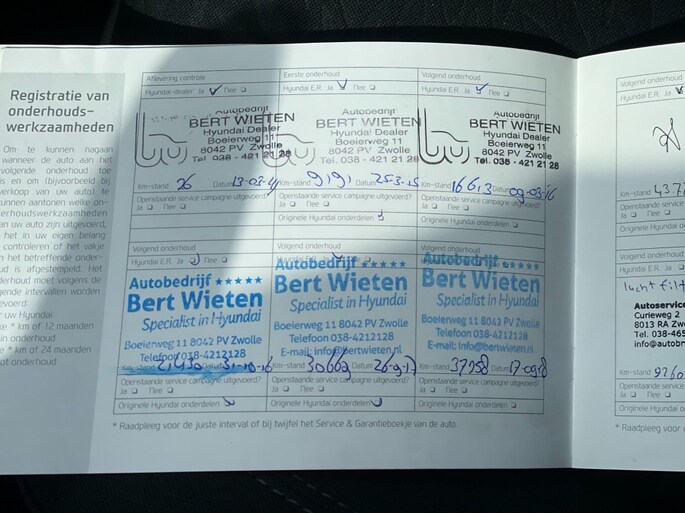 Registratie van
onderhouds-
werkzaamheden
Om te kunnen nagaan
wanneer de auto aan het
volgende onderhoud toe
is en om (bijvoorbeeld bij
verkoop van uw auto) te
kunnen aantonen welke on-
derhoudswerkzaamheden
an uw auto zijn uitgevoerd,
het in uw eigen belang
controleren of het vakje
het betreffende onder-
d is afgestempeld. Het
derhoud moet volgens de
lgende intervallen worden
gevoerd:
r uw Hyundai
e * km of 12 maanden
in onderhoud
e * km of 24 maanden
ot onderhoud
Aflevering controle
Hyundai-dealer Ja Nee
Autobedrijf
BERT WIETEN
Hyundai Dealer
Boeierweg 11
8042 PV Zwolle
Tel. 038 - 421 21 28
Km-stand 26 Datum 13-03-14
Openstaande service campagne uitgevoerd?
Ja Nee
Eerste onderhoud
Hyundai E.R. Ja Nee
Autobedrijf
BERT WIETEN
Hyundai Dealer
Boeierweg 11
8042 PV Zwolle
Tel. 038 - 421 21 28
Km-stand 9191 Datum 25-3-15
Openstaande service campagne uitgevoerd?
Ja Nee
Originele Hyundai onderdelen
Volgend onderhoud
Hyundai E.R. Ja Nee
Autobedrijf
BERT WIETEN
Hyundai Dealer
Boeierweg 11
8042 PV Zwolle
Tel. 038 - 421 21 28
Km-stand 16613 Datum 09-03-16
Openstaande service campagne uitgevoerd?
Ja Nee
Originele Hyundai onderdelen
Volgend onderhoud
Hyundai E.R. Ja Nee
Autobedrijf
Bert Wieten
Specialist in Hyundai
Boeierweg 11 8042 PV Zwolle
Telefoon 038-4212128
Km-stand 21430 Datum 31-10-16
Openstaande service campagne uitgevoerd?
Ja Nee
Originele Hyundai onderdelen
Volgend onderhoud
Hyundai E.R. Ja Nee
Autobedrijf
Bert Wieten
Specialist in Hyundai
Boeierweg 11 8042 PV Zwolle
Telefoon 038-4212128
E-mail: info@bertwieten.nl
Km-stand 30662 Datum 26-9-17
Openstaande service campagne uitgevoerd?
Ja Nee
Originele Hyundai onderdelen
Volgend onderhoud
Autobedrijf
Bert Wieten
Specialist in Hyundai
Boeierweg 11 8042 PV Zwolle
Telefoon 038-4212128
E-mail: info@bertwieten.nl
Km-stand 37258 Datum 17-09-18
Openstaande service campagne uitgevoerd?
Ja Nee
Originele Hyundai onderdelen
* Raadpleeg voor de juiste interval of bij twijfel het Service & Garantieboekje van de auto.
Volgend
Hyundai E.R. Ja
Km-stand 437
Openstaande servi
Ja Nee
Originele Hyund
Volgend onder
Hyundai E.R. Ja
lucht filt
Autoservice
Curieweg 2
8013 RA Zwo
Tel. 038-465
info@autobr
Km-stand 9260
Openstaande servi
Ja Nee
Originele Hyund
* Raadpl